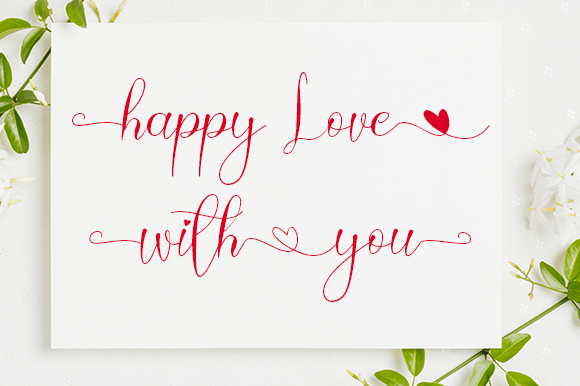 happy Love
with you